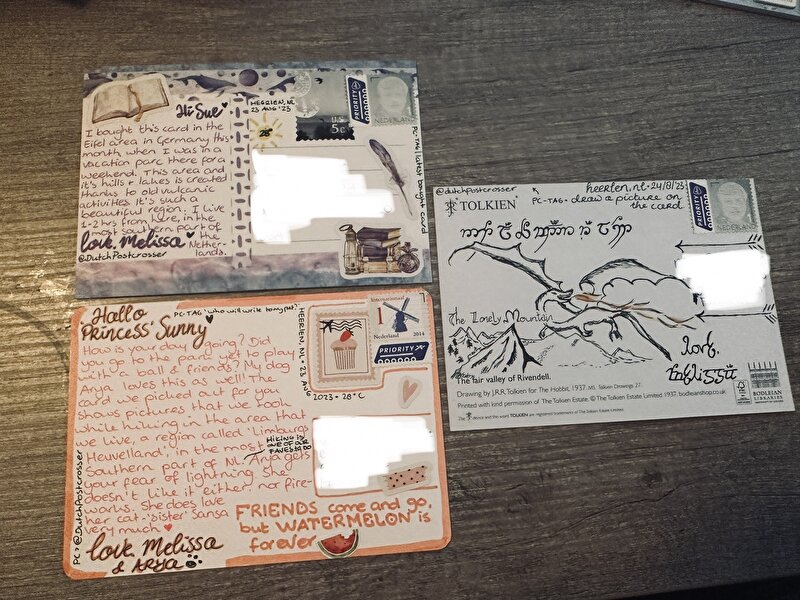 Hi Sue
I bought this card in the
Eifel area in Germany this
month, when I was in a
vacation parc there for a
weekend. This area and
it's hills + lakes is created
thanks to old vulcanic
activities. It's such a
beautiful region. I live
1-2 hrs from here, in the
most southern part of
the Nether-
lands.
love, Melissa
@DutchPostcrosser
HEERLEN, NL
23 AUG '23
28°
U.S.
5c
PRIORITY
NEDERLAND
PC-TAG | latest bought card
Hallo
'Princess' Sunny
PC-TAG 'who will write to my pet?'
How is your day going? Did
you go to the park yet to play
with a ball & friends? My dog
Arya loves this as well! The
card we picked out for you
shows pictures that we found
while hiking in the area that
we live a region called 'Limburgs
Heuvelland', in the most
Southern part of NL. Arya gets
your fear of lightning she
doesn't like it either, nor fire-
works. She does love
her cat-'sister' Sansa
very much
HIKING IS
ONE OF OUR
FAVES TO DO
love, Melissa
& ARYA
PC > @DutchPostcrosser
HEERLEN, NL • 23 AUG
2023 • 28°C
Internationaal
1
Nederland 2014
PRIORITY
FRIENDS come and go,
but WATERMELON is
forever
@dutchpostcrosser
heerlen, nl • 24/8/'23
PC-TAG • draw a picture on
the card
TOLKIEN
PRIORITY
NEDERLAND
The Lonely Mountain
love,
The fair valley of Rivendell.
Drawing by J.R.R. Tolkien for The Hobbit, 1937. MS. Tolkien Drawings 27.
Printed with kind permission of The Tolkien Estate. © The Tolkien Estate Limited 1937. bodleianshop.co.uk
device and the word TOLKIEN are registered trademarks of The Tolkien Estate Limited.
FSC
BODLEIAN
LIBRARIES